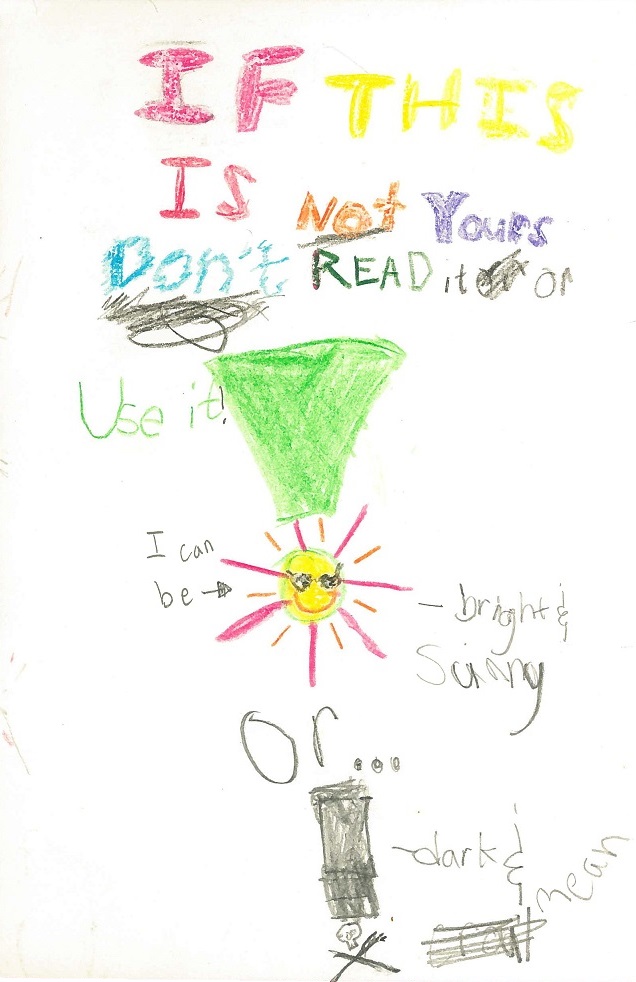 IF THIS
IS Not Yours
Don't READ it or
Use it!
I can
be
- bright &
Sunny
Or...
- dark &
mean